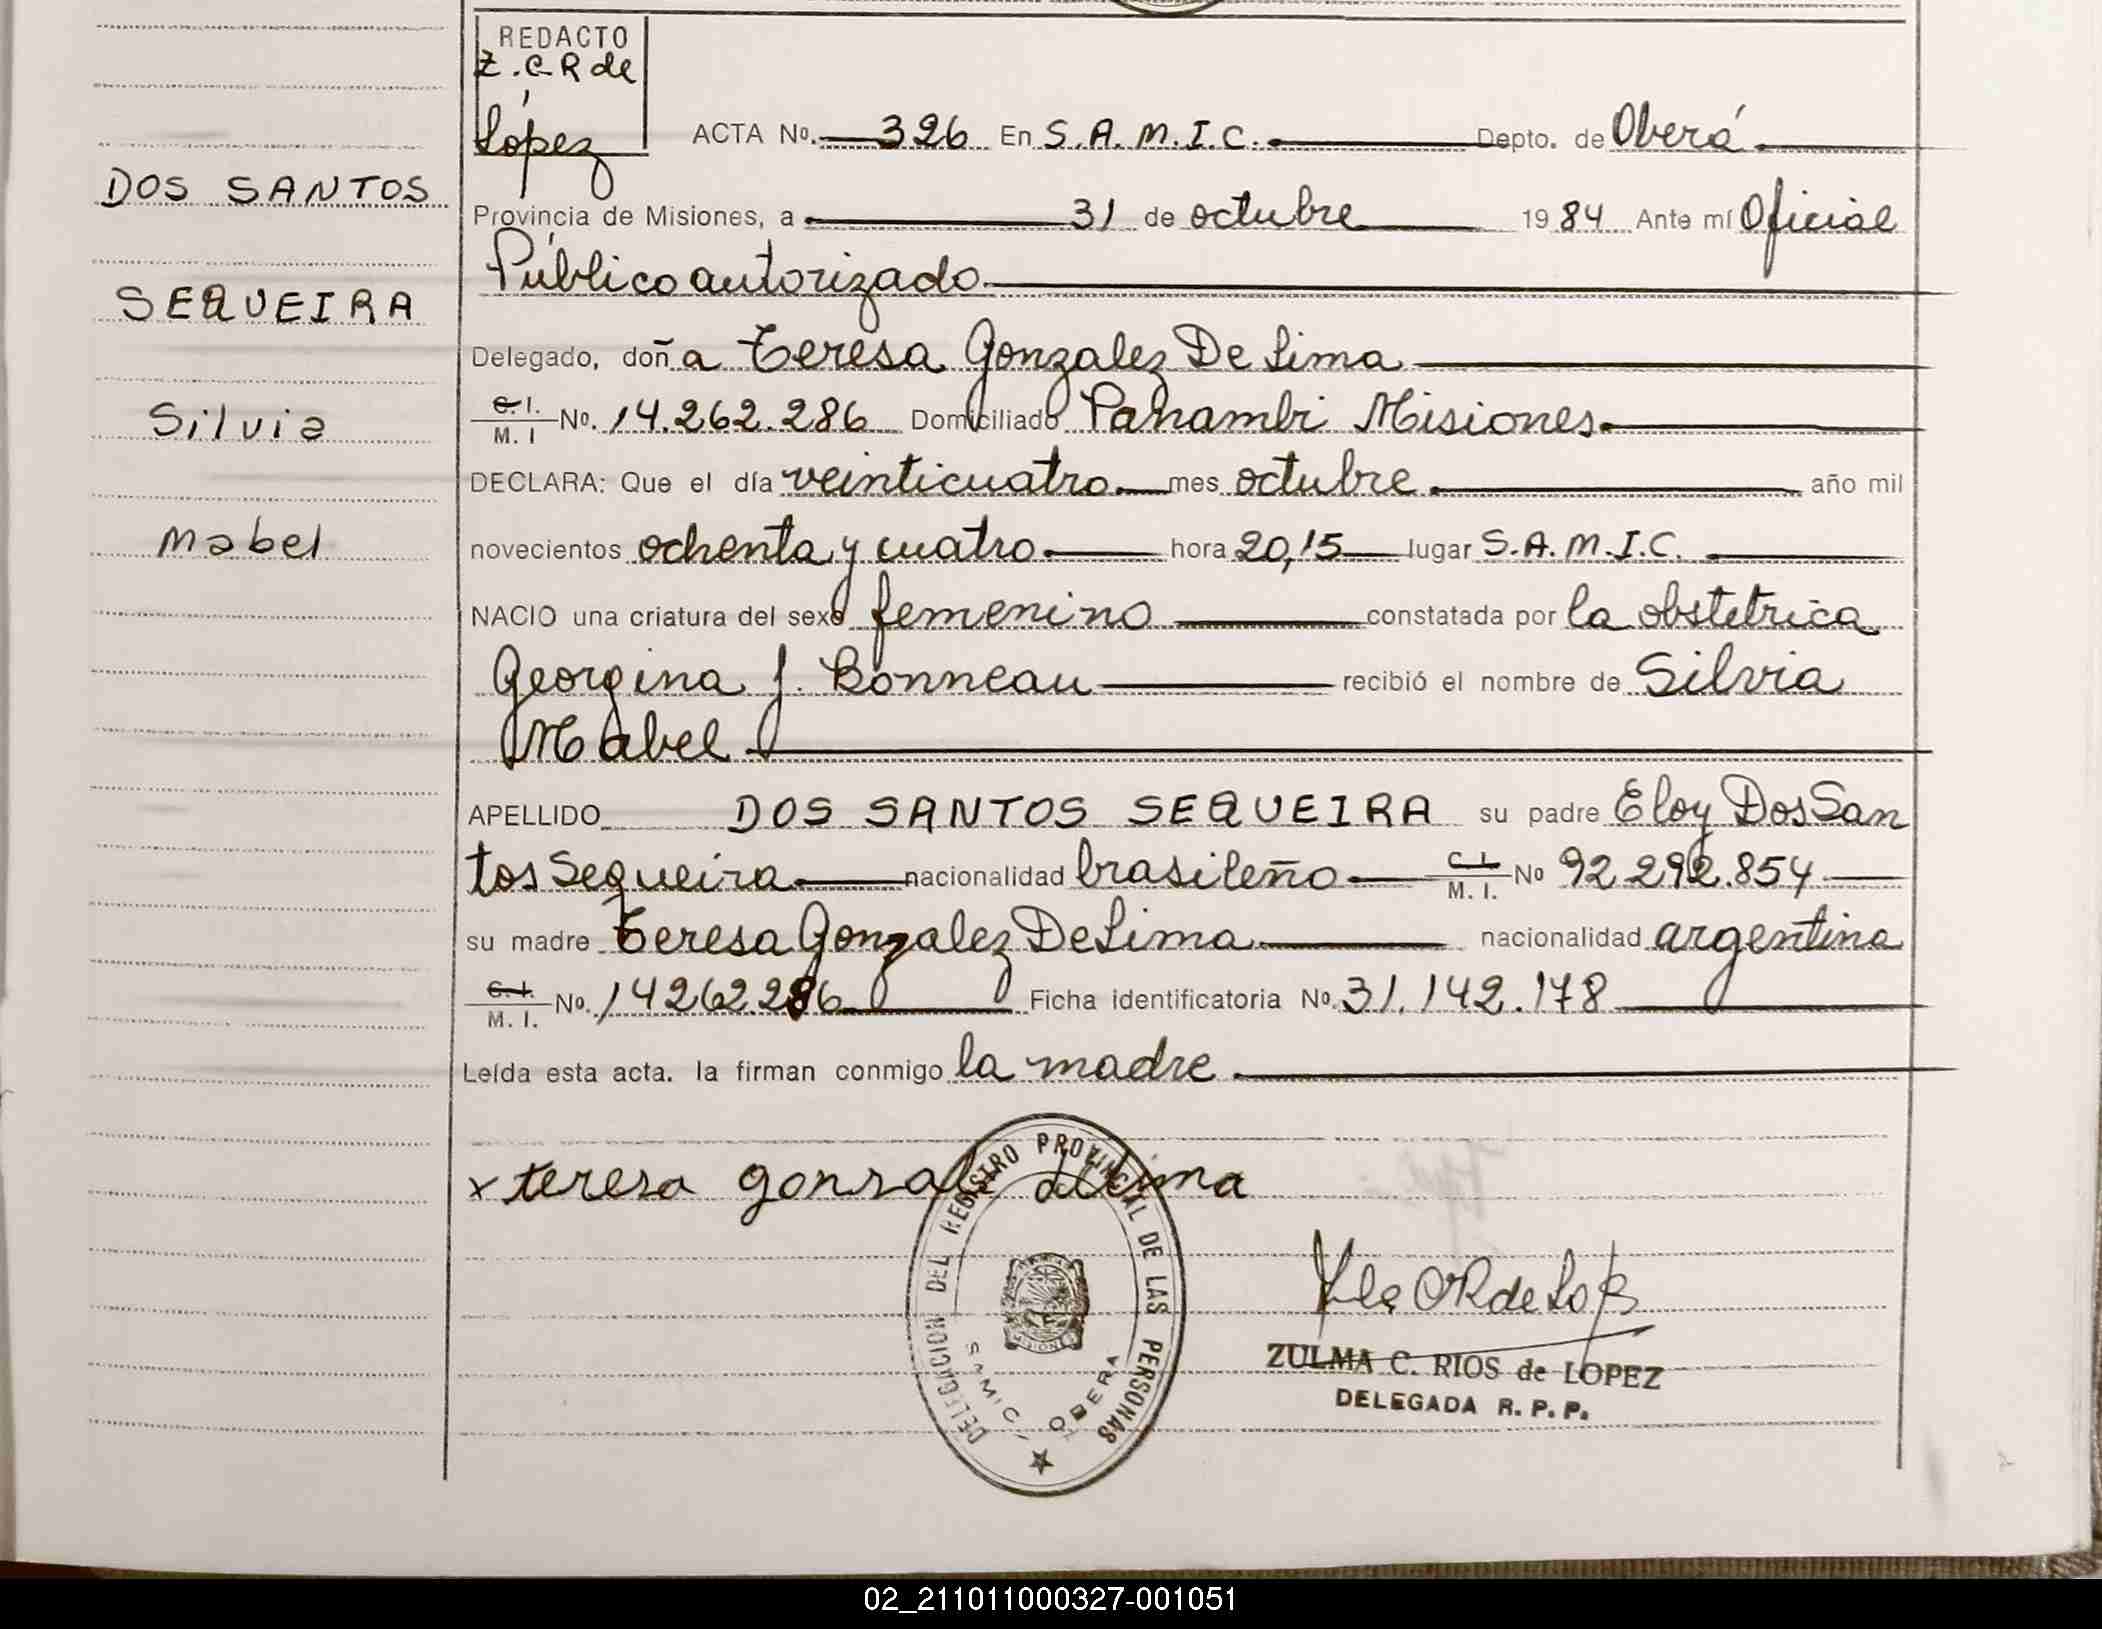 REDACTO
Z.C.R de
López
ACTA Nº. 326 En S.A.M.I.C. Depto. de Oberá
DOS SANTOS
Provincia de Misiones, a 31 de octubre 1984 Ante mí Oficial
Público autorizado
SEQUEIRA
Delegado, doña Teresa Gonzalez De Lima
Silvia
C. I. / M. I No. 14.262.286 Domiciliado Panambi Misiones
DECLARA: Que el día veinticuatro mes octubre año mil
Mabel
novecientos ochenta y cuatro hora 20,15 lugar S.A.M.I.C.
NACIO una criatura del sexo femenino constatada por la obstetrica
Georgina J. Bonneau recibió el nombre de Silvia
Mabel
APELLIDO DOS SANTOS SEQUEIRA su padre Eloy Dos San
tos Sequeira nacionalidad brasileño C. I. / M. I. Nº 92.292.854
su madre Teresa Gonzalez De Lima nacionalidad argentina
C. I. / M. I. Nº. 14262.286 Ficha identificatoria Nº. 31.142.178
Leída esta acta. la firman conmigo la madre
x teresa gonzale delima
DELEGACION DEL REGISTRO PROVINCIAL DE LAS PERSONAS
S.A.M.I.C. OBERA
ZULMA C. RIOS de LOPEZ
DELEGADA R. P. P.
02_211011000327-001051